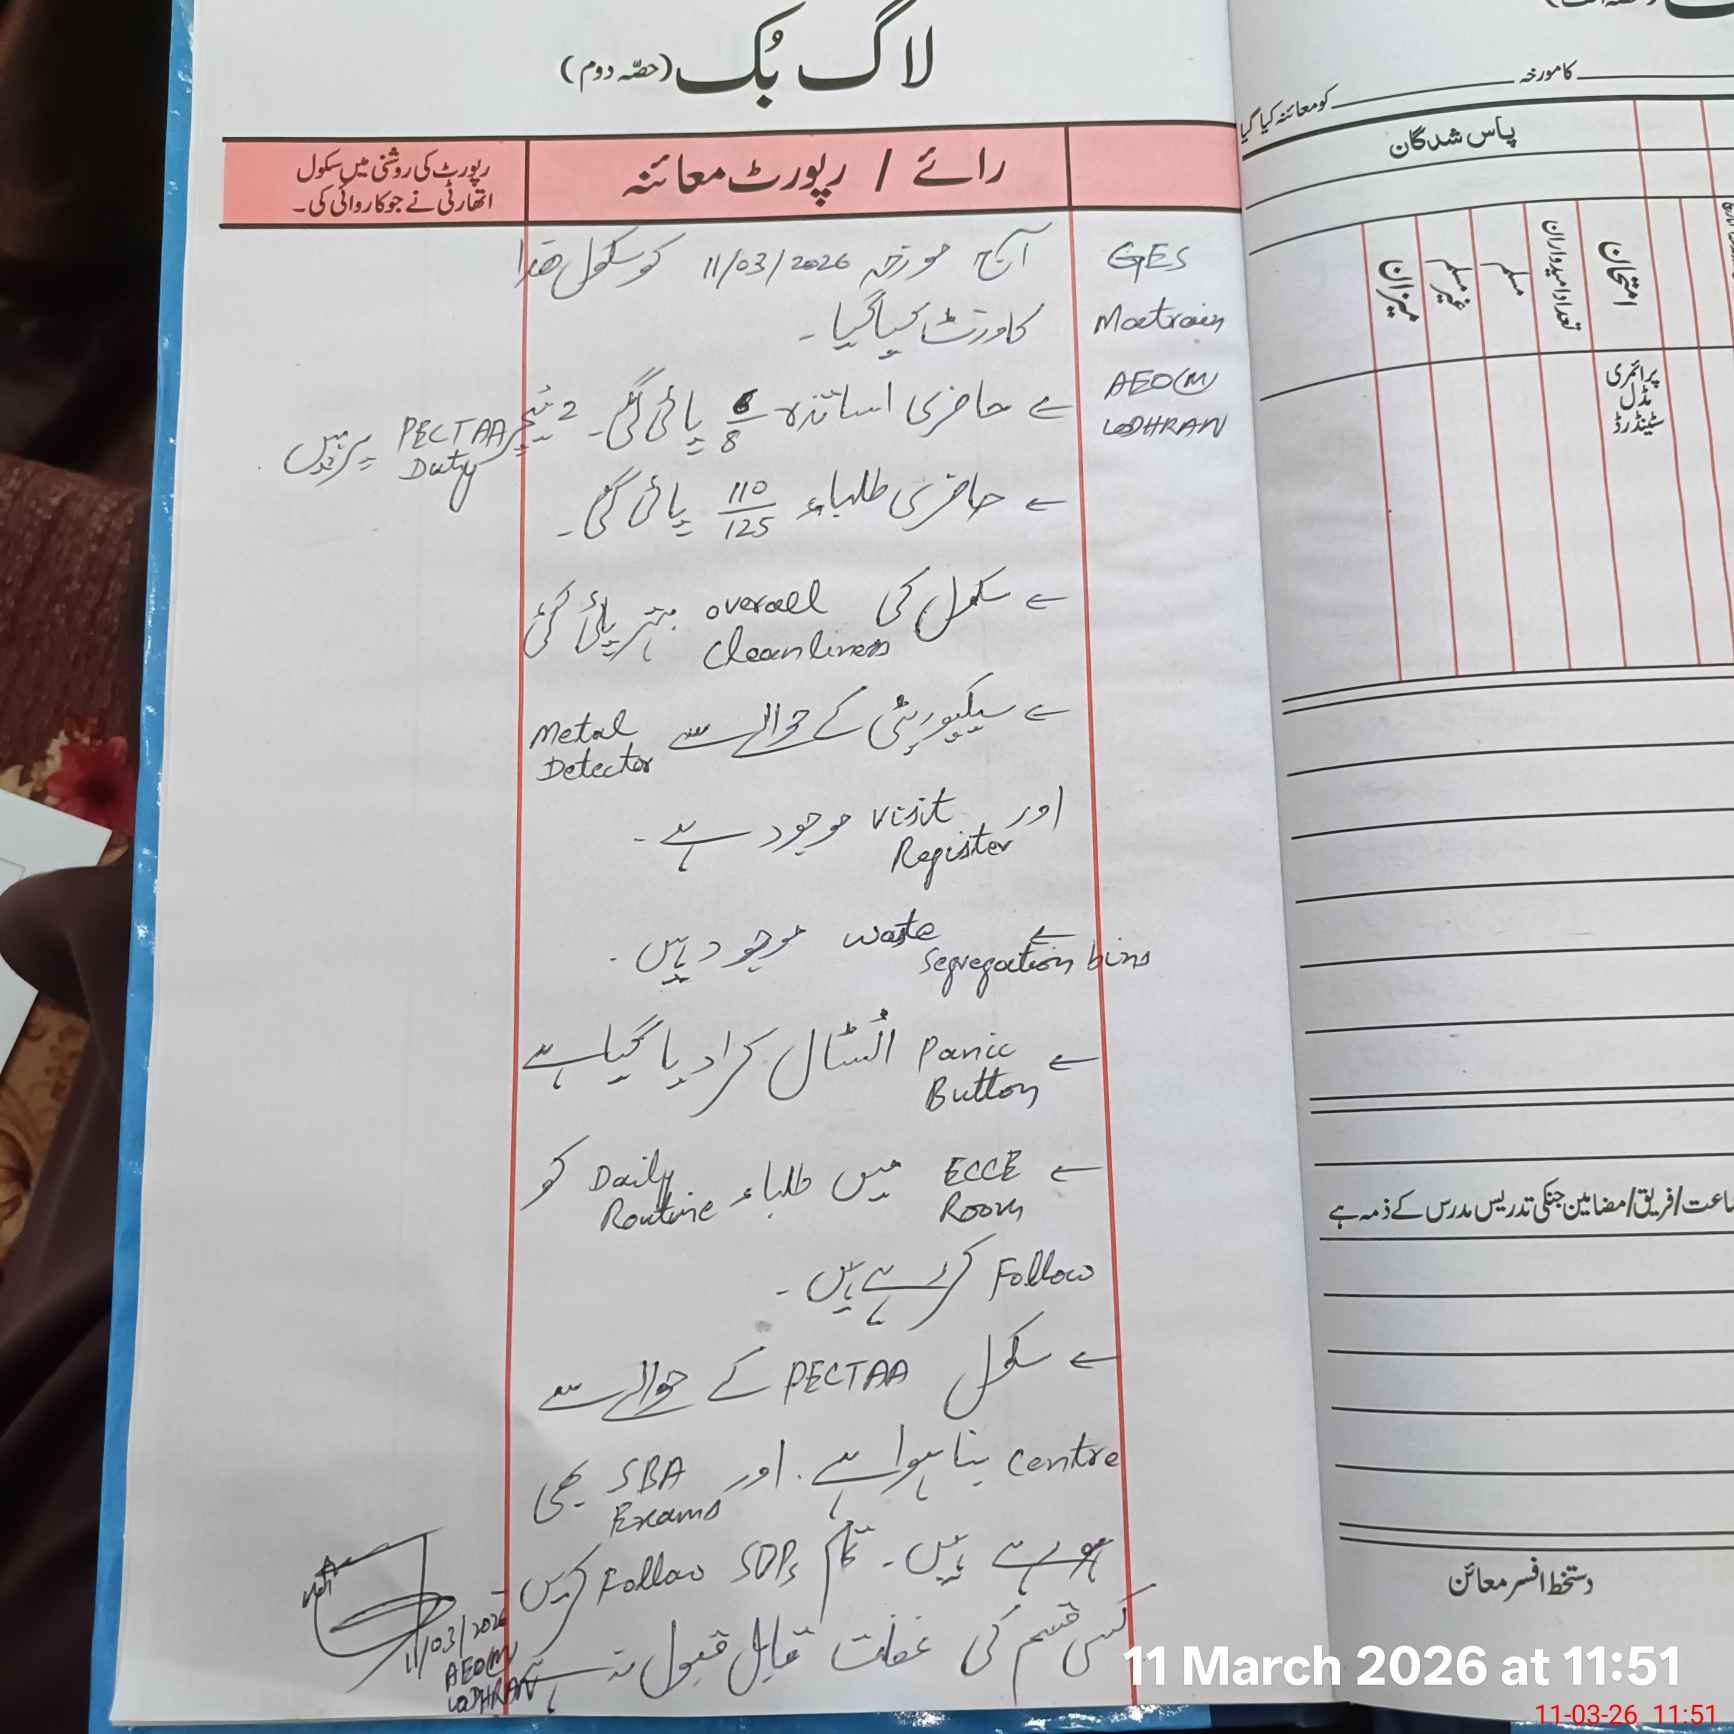 لاگ بُک (حصّہ دوم)
رائے / رپورٹ معائنہ
رپورٹ کی روشنی میں سکول
اتھارٹی نے جو کاروائی کی۔
GES
Moatrain
AEO(M)
LODHRAN
آج مورخہ 11/03/2026 کو سکول ھذا
کا وزٹ کیا گیا۔
← حاضری اساتذہ 6/8 پائی گئی۔ 2 ٹیچر PECTAA Duty پر ہیں
← حاضری طلباء 110/125 پائی گئی۔
← سکول کی overall cleanliness بہتر پائی گئی
← سیکیورٹی کے حوالے سے Metal Detector
اور visit Register موجود ہے۔
← waste segregation bins موجود ہیں۔
← Panic Button انسٹال کرا دیا گیا ہے
← ECCE Room میں طلباء Daily Routine کو
Follow کر رہے ہیں۔
← سکول PECTAA کے حوالے سے
centre بنا ہوا ہے۔ اور SBA Exams بھی
ہو رہے ہیں۔ تمام SOPs Follow کریں۔
کسی قسم کی غفلت قابل قبول نہ ہے
11/03/2026
AEO(M)
LODHRAN
کا مورخہ
کو معائنہ کیا گیا
پاس شدگان
امتحان
تعداد امیدواران
مسلم
غیر مسلم
میزان
پرائمری
مڈل
سٹینڈرڈ
جماعت/فریق/مضامین جنکی تدریس مدرس کے ذمہ ہے
دستخط افسر معائن
11 March 2026 at 11:51
11-03-26 11:51